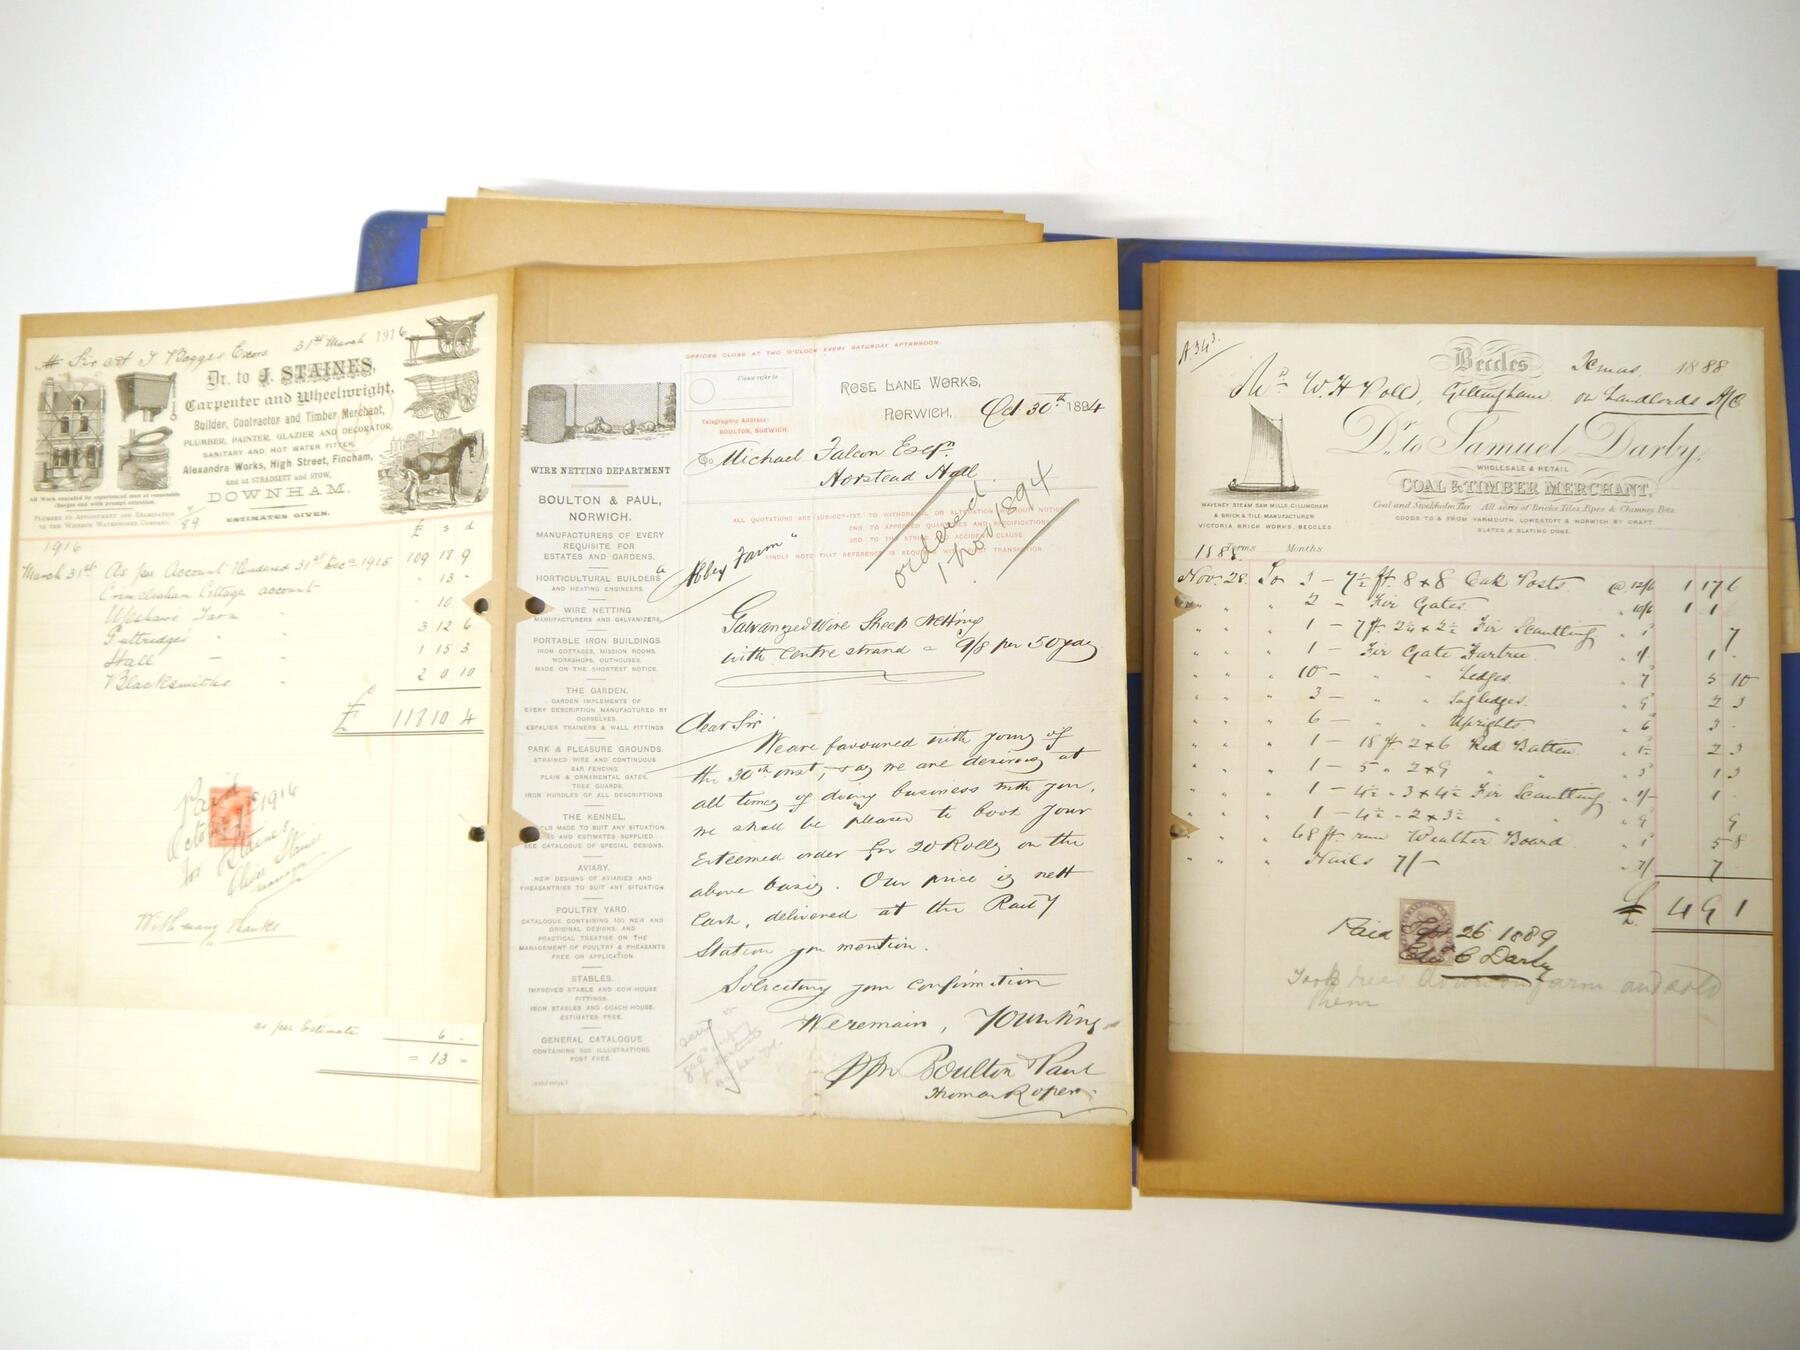 31st March 1916
Dr. to J. STAINES,
Carpenter and Wheelwright,
Builder, Contractor and Timber Merchant,
PLUMBER, PAINTER, GLAZIER AND DECORATOR,
SANITARY AND HOT WATER FITTER,
Alexandra Works, High Street, Fincham,
and at STRADSETT and STOW,
DOWNHAM.
All Work executed by experienced men at reasonable
charges and with prompt attention.
ESTIMATES GIVEN.
£ s d
1916
March 31st As per Account Rendered 31st Dec 1915 109 18 9
Cottage account - 13 -
- 10 -
3 12 6
Hall - 1 15 3
Blacksmiths 2 0 10
£ 118 10 4
Paid
October 1916
for J Staines
manager
With many thanks
as per Estimate 6 -
= 13 =
OFFICES CLOSE AT TWO O'CLOCK EVERY SATURDAY AFTERNOON.
Please refer to
ROSE LANE WORKS,
NORWICH, Oct 30th 1894
Telegraphic Address:
BOULTON, NORWICH.
To Michael Falcon Esqr
Horstead Hall
ordered
1 Nov 1894
ALL QUOTATIONS ARE SUBJECT—1ST. TO WITHDRAWAL OR ALTERATION WITHOUT NOTICE
2ND. TO APPROVED QUANTITIES AND SPECIFICATIONS
3RD TO THE STRIKE AND ACCIDENT CLAUSE.
KINDLY NOTE THAT REFERENCE IS REQUIRED WITH FIRST TRANSACTION.
"Abbey Farm"
Galvanized Wire Sheep Netting
with centre strand = 9/8 per 50 yds
Dear Sir
We are favoured with yours of
the 30th inst, & as we are desirous at
all times of doing business with you,
we shall be pleased to book your
Esteemed order for 20 Rolls on the
above basis. Our price is nett
Cash, delivered at the Railway
Station you mention.
Soliciting your confirmation
We remain, Yours truly
ppn Boulton & Paul
Thomas Roper
WIRE NETTING DEPARTMENT
BOULTON & PAUL,
NORWICH.
MANUFACTURERS OF EVERY
REQUISITE FOR
ESTATES AND GARDENS.
HORTICULTURAL BUILDERS
AND HEATING ENGINEERS.
WIRE NETTING
MANUFACTURERS AND GALVANIZERS.
PORTABLE IRON BUILDINGS
IRON COTTAGES, MISSION ROOMS.
WORKSHOPS, OUTHOUSES,
MADE ON THE SHORTEST NOTICE.
THE GARDEN.
GARDEN IMPLEMENTS OF
EVERY DESCRIPTION MANUFACTURED BY
OURSELVES.
ESPALIER TRAINERS & WALL FITTINGS
PARK & PLEASURE GROUNDS.
STRAINED WIRE AND CONTINUOUS
BAR FENCING.
PLAIN & ORNAMENTAL GATES.
TREE GUARDS.
IRON HURDLES OF ALL DESCRIPTIONS
THE KENNEL.
MADE TO SUIT ANY SITUATION
AND ESTIMATES SUPPLIED.
SEE CATALOGUE OF SPECIAL DESIGNS.
AVIARY.
NEW DESIGNS OF AVIARIES AND
PHEASANTRIES TO SUIT ANY SITUATION
POULTRY YARD.
CATALOGUE CONTAINING 100 NEW AND
ORIGINAL DESIGNS, AND
PRACTICAL TREATISE ON THE
MANAGEMENT OF POULTRY & PHEASANTS
FREE ON APPLICATION.
STABLES.
IMPROVED STABLE AND COW-HOUSE
FITTINGS.
IRON STABLES AND COACH-HOUSE.
ESTIMATES FREE.
GENERAL CATALOGUE
CONTAINING 500 ILLUSTRATIONS
POST FREE.
Beccles Xmas 1888
Mr W. H. Poll, Gillingham on Landlords A/C
Dr. to Samuel Darby,
WHOLESALE & RETAIL
COAL & TIMBER MERCHANT,
Coal and Stockholm Tar. All sorts of Bricks, Tiles, Pipes & Chimney Pots.
GOODS TO & FROM YARMOUTH, LOWESTOFT & NORWICH BY CRAFT.
SLATES & SLATING DONE.
WAVENEY STEAM SAW MILLS, GILLINGHAM
& BRICK & TILE MANUFACTURER
VICTORIA BRICK WORKS, BECCLES
Terms Months
1888
Nov. 28 To 3 - 7½ ft 8 x 8 Oak Posts @ 12/6 1 17 6
" " " 2 - Fir Gates 10/6 1 1
" " " 1 - 7 ft 2½ x 2½ Fir Scantling 7
" " " 1 - Fir Gate 1 -
" " " 10 - " " Ledges " 7 5 10
" " " 3 - " " " 9 2 3
" " " 6 - " " Uprights " 6 3 -
" " " 1 - 18 ft 2 x 6 Red Batten 2 3
" " " 1 - 5 " 2 x 9 " " 1 3
" " " 1 - 4½ - 3 x 4½ Fir Scantling 1 -
" " " 1 - 4½ - 2 x 3½ " " " 9 9
" " " 68 ft run Weather Board " 1 5 8
" " " Nails 7/- 7/ 7 -
£ 4 9 1
Paid Sept 26 1889
C Darby
Took trees down on farm and sold
them